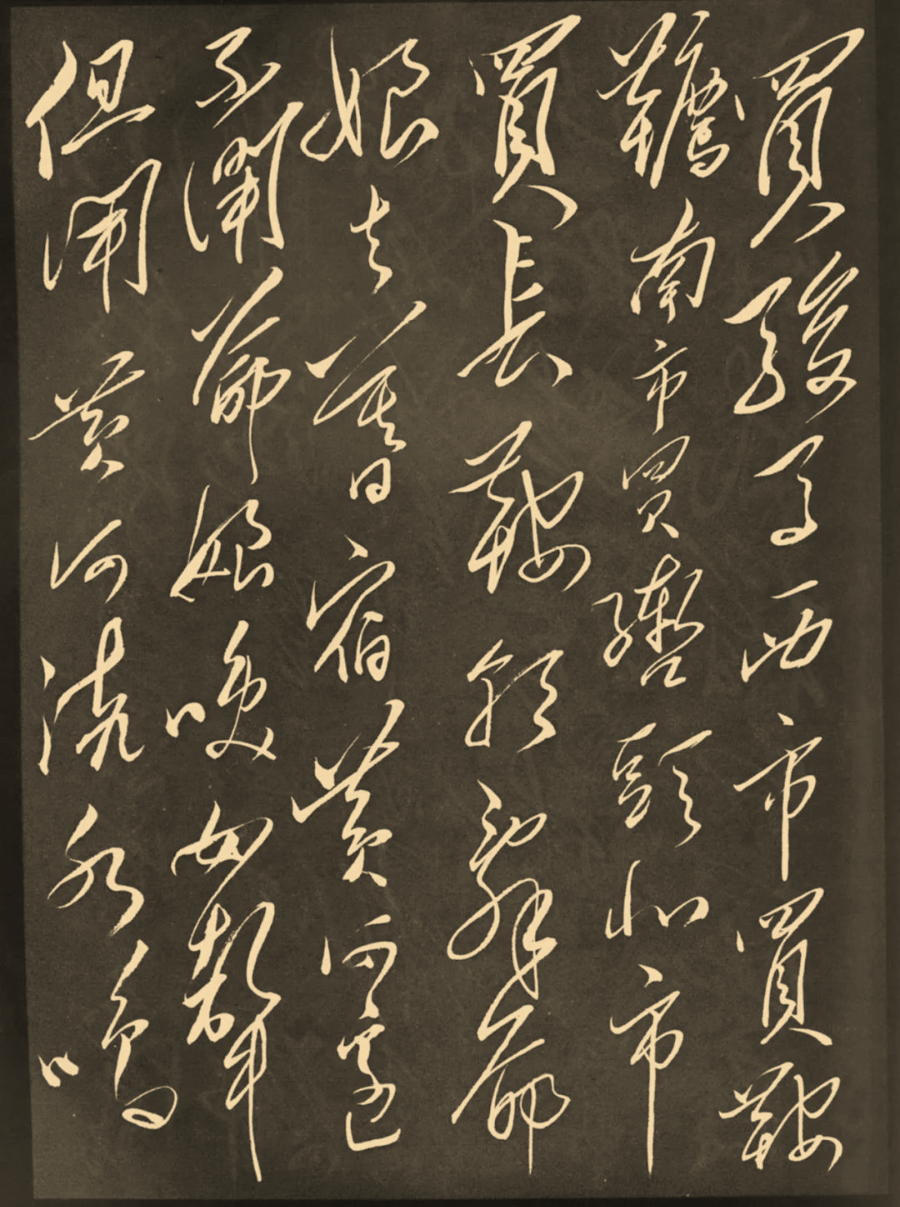 買駿馬西市買鞍
韉南市買轡頭北市
買長鞭朝辭爺
娘去暮宿黃河邊
不聞爺娘喚女聲
但聞黃河流水鳴